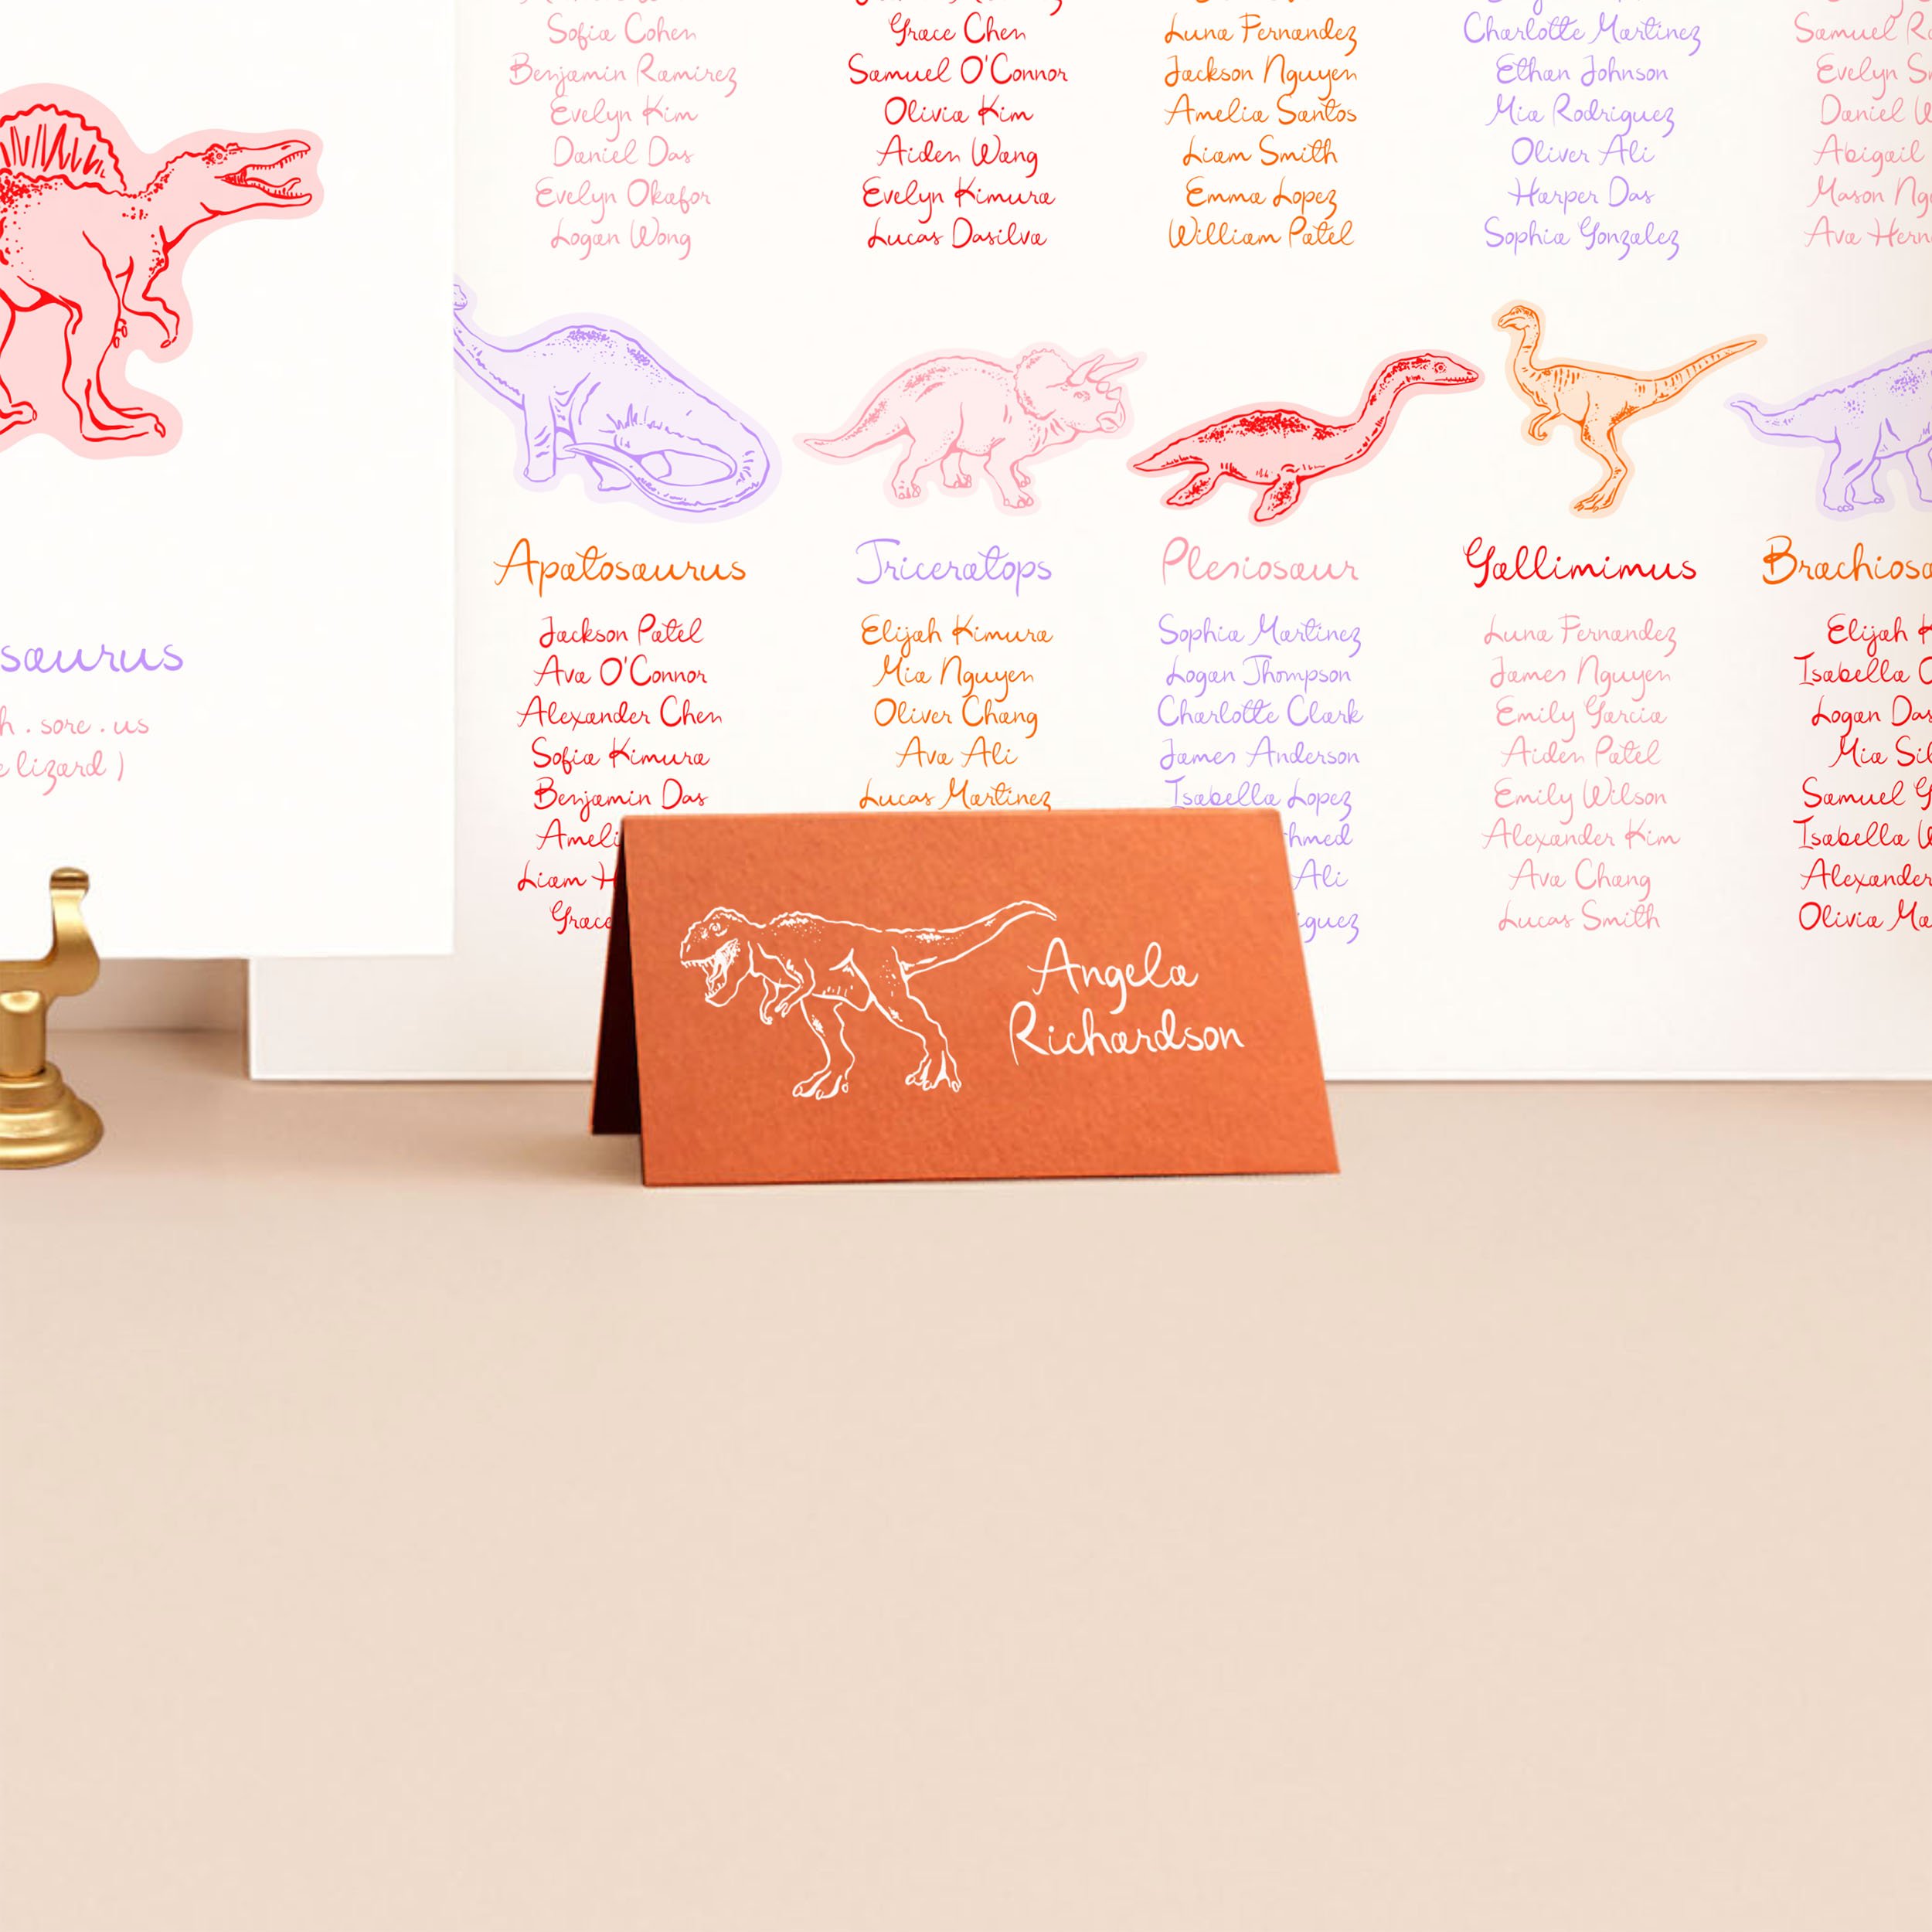 saurus
h . sore . us
e lizard )
Sofia Cohen
Benjamin Ramirez
Evelyn Kim
Daniel Das
Evelyn Okafor
Logan Wong
Grace Chen
Samuel O'Connor
Olivia Kim
Aiden Wang
Evelyn Kimura
Lucas Dasilva
Luna Fernandez
Jackson Nguyen
Amelia Santos
Liam Smith
Emma Lopez
William Patel
Charlotte Martinez
Ethan Johnson
Mia Rodriguez
Oliver Ali
Harper Das
Sophia Gonzalez
Samuel
Evelyn
Daniel
Abigail
Mason
Ava
Apatosaurus
Jackson Patel
Ava O'Connor
Alexander Chen
Sofia Kimura
Benjamin Das
Ameli
Liam H
Grace
Triceratops
Elijah Kimura
Mia Nguyen
Oliver Chang
Ava Ali
Lucas Martinez
Plesiosaur
Sophia Martinez
Logan Thompson
Charlotte Clark
James Anderson
Isabella Lopez
hmed
Ali
iguez
Gallimimus
Luna Fernandez
James Nguyen
Emily Garcia
Aiden Patel
Emily Wilson
Alexander Kim
Ava Chang
Lucas Smith
Brachiosa
Elijah
Isabella
Logan Das
Mia Sil
Samuel G
Isabella W
Alexander
Olivia Ma
Angela
Richardson